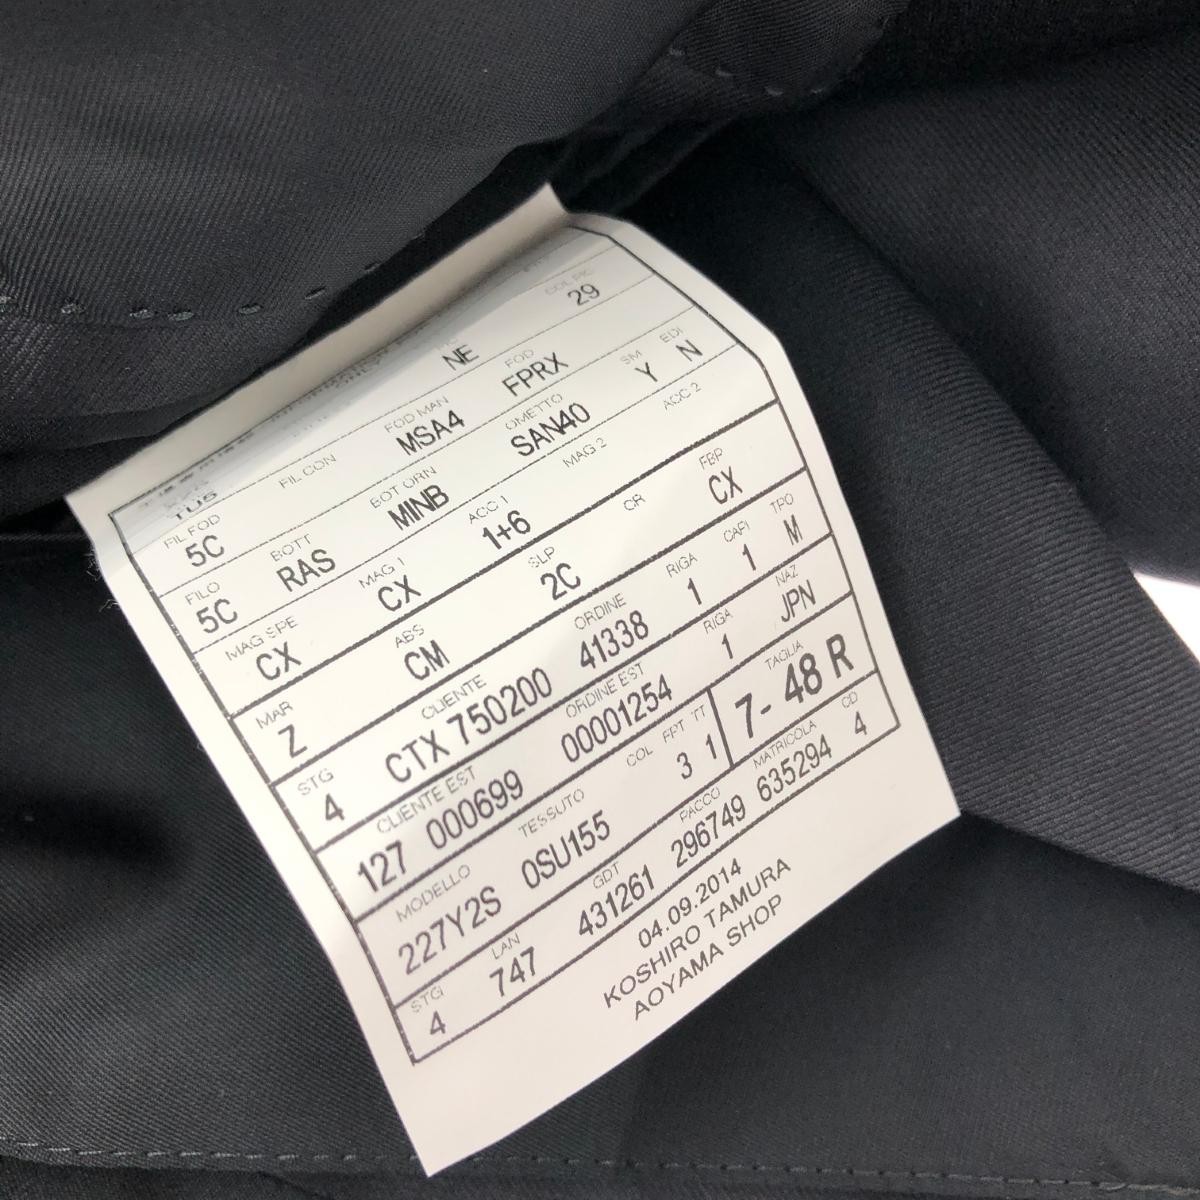 COL PIC
NE 29
TUS FIL CON FOD MAN FOD
MSA4 FPRX
FIL FOD BOT ORN OMETTO SM EDI
5C MINB SAN40 Y N
FILO BOTT ACC 1 MAG 2 ACC 2
5C RAS 1+6
MAG SPE MAG 1 CR FBP
CX CX CX
MAR ABS SLP RIGA CAPI TPO
Z CM 2C 1 1 M
STG CLIENTE ORDINE RIGA NAZ
4 CTX 750200 41338 1 JPN
CLIENTE EST ORDINE EST
127 000699 00001254
MODELLO TESSUTO COL FPT TT TAGLIA
227Y2S 0SU155 3 1 7- 48 R
STG LAN GDT PACCO MATRICOLA CD
4 747 431261 296749 635294 4
04.09.2014
KOSHIRO TAMURA
AOYAMA SHOP